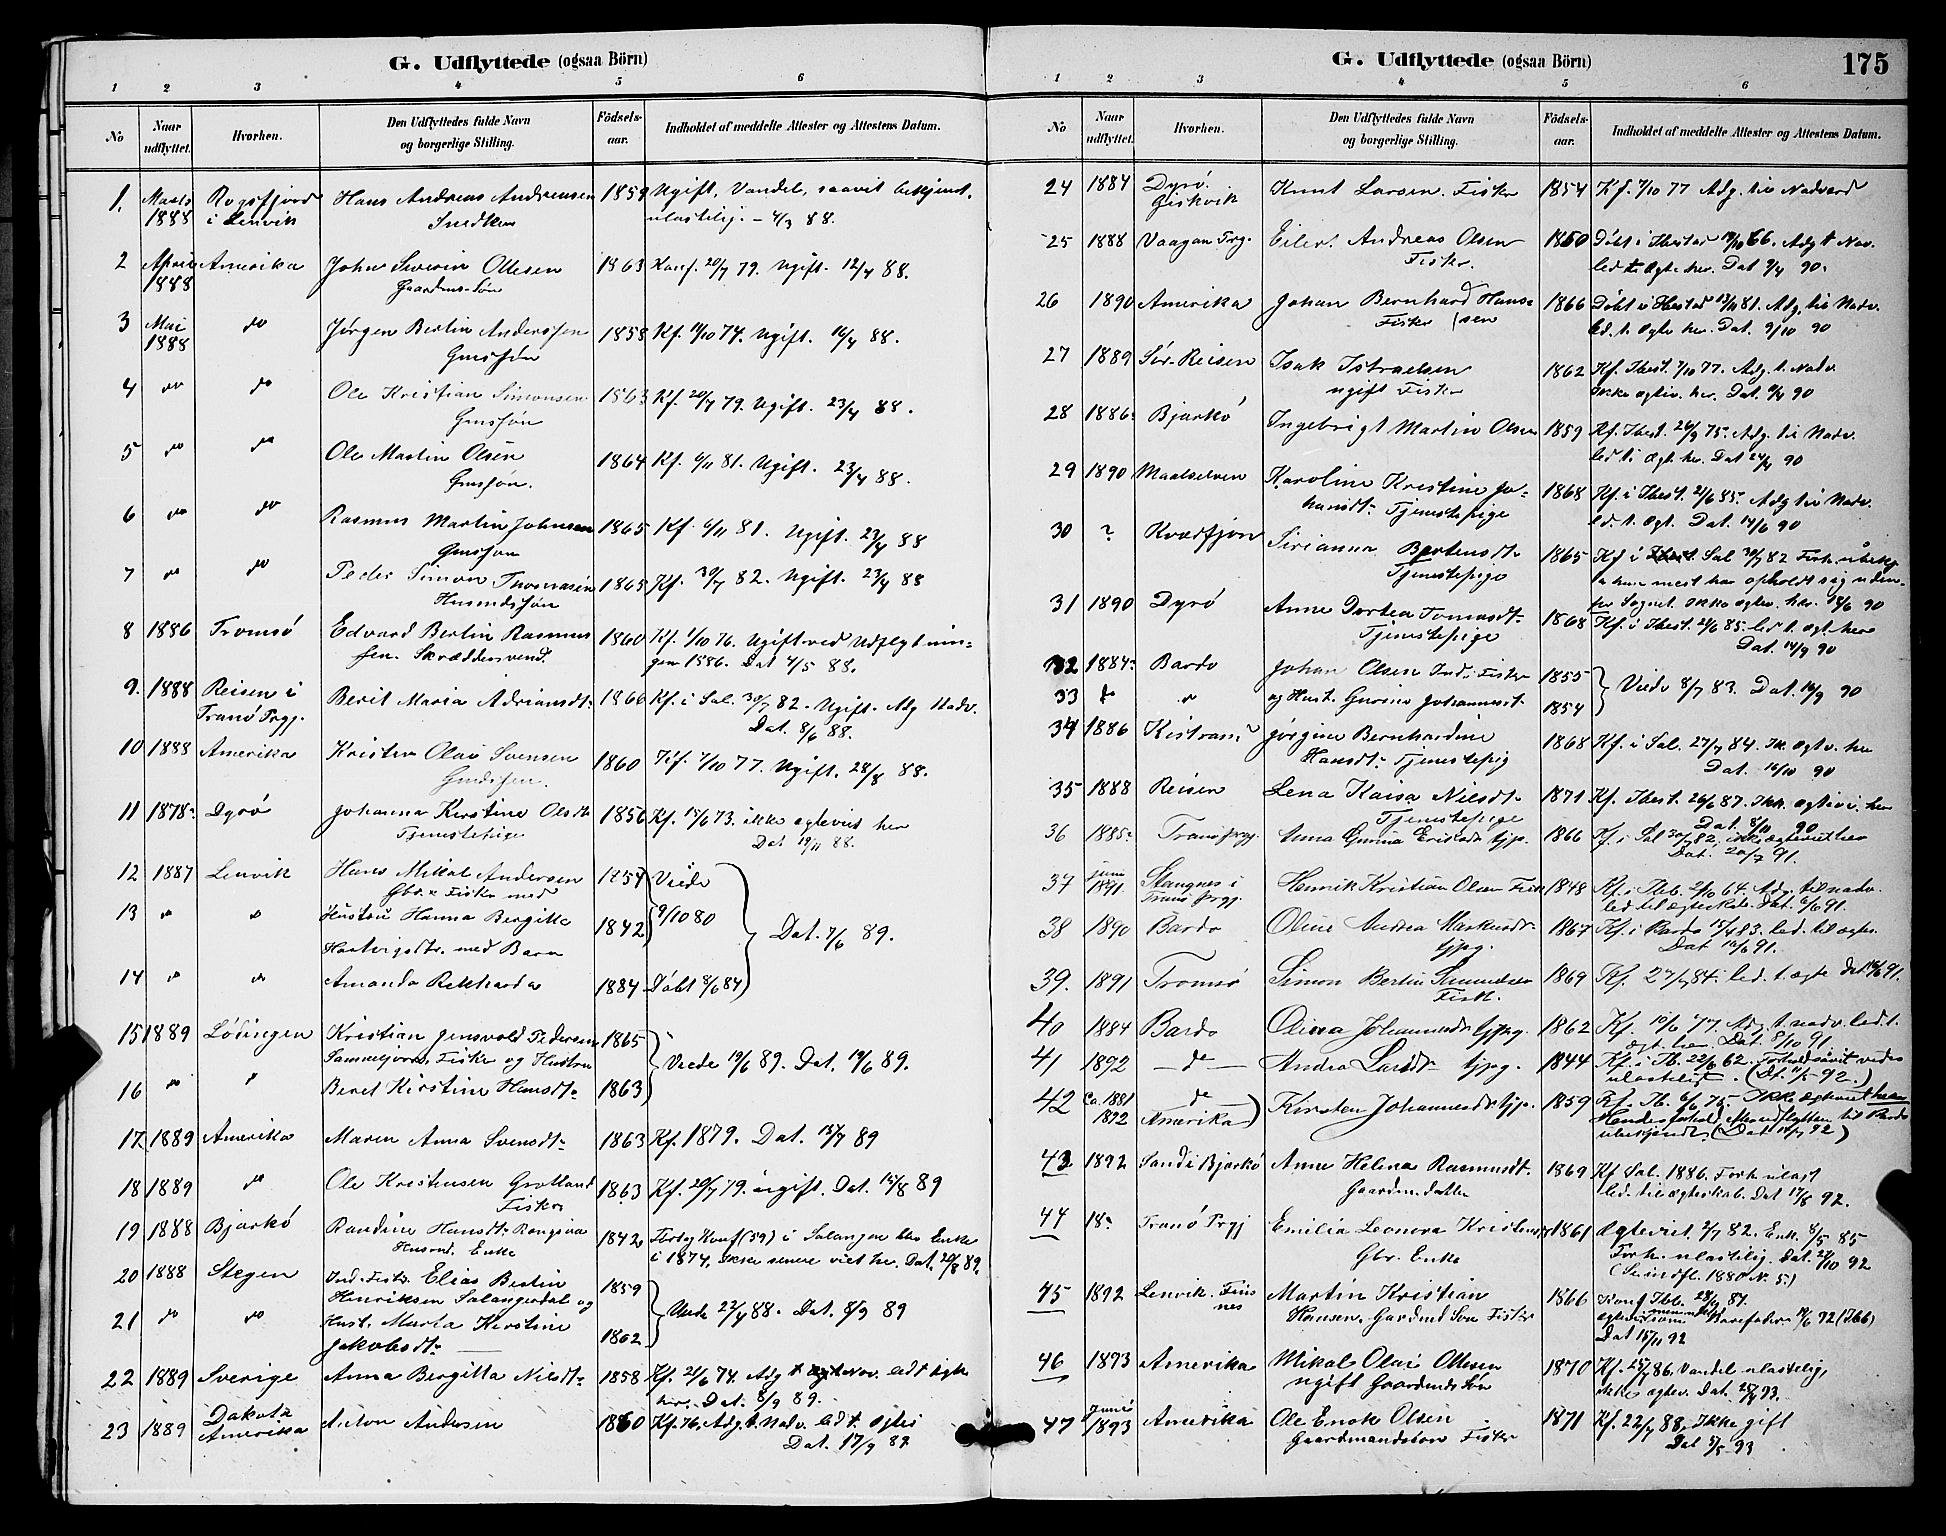 G. Udflyttede (ogsaa Börn)
1 2 3 4 5 6
No
Naar udflyttet.
Hvorhen.
Den Udflyttedes fulde Navn og borgerlige Stilling.
Födsels-aar.
Indholdet af meddelte Attester og Attestens Datum.
1. Marts 1888 i Lenvik Hans Andreas Andreasen 1859 Ugift, Vandel, saavit bekjendt,
ulastelig. – 4/3 88.
2 April 1888 Amerika John Severin Ottesen 1863 Konf. 20/7 79. Ugift. 12/4 88.
Gaardms. søn
3 Mai 1888 do Jørgen Berlin Anderssen 1858 Kf. 11/10 74. Ugift. 16/4 88.
Gmssøn
4 do do Ole Kristian Simonsen 1863 Kf. 20/7 79. Ugift. 23/4 88.
Gmssøn
5 do do Ole Martin Olsen 1864 Kf. 6/11 81. Ugift. 23/4 88.
Gmssøn.
6 do do Rasmus Martin Johnsen 1865 Kf. 6/11 81. Ugift. 23/4 88
Gmssøn
7 do do Peder Simon Thomassen 1865 Kf. 30/7 82. Ugift. 23/4 88
Husmdssøn
8 1886 Tromsø Edvard Berlin Rasmus 1860 Kf. 1/10 76. Ugift ved Udflytnin-
sen. Skræddersvend. gen 1886. Dat 4/5 88.
9. 1888 Reisen i Berit Maria Adriansdt. 1866 Kf. i Sal. 30/7 82. Ugift. Adg Nadv.
Tranø Prgj. Dat. 8/6 88.
10 1888 Amerika Kristen Olai Svensen 1860 Kf. 7/10 77. Ugift. 28/8 88.
11 1878 Dyrø Johanna Kirstine Olsdt 1856 Kf. 15/6 73. ikke egteviet her
Tjenestepige Dat 19/11 88.
12 1887 Lenvik Hans Mikal Andersen 1854 Viede
Gbr. & Fisker med 9/10 80
13 " " Hustru Hanna Bergitte 1842 Dat. 7/6 89.
Hartvigsdtr. med Barn
14 " " Amanda Rikharda 1884 Døbt 8/6 84
15 1889 Lödingen Kristian Jensvold Pedersen 1865
Fisker og Hustru Viede 19/6 89. Dat. 19/6 89.
16 " " Beret Kirstine Hansdt. 1863
17. 1889 Amerika Maren Anna Svensdt. 1863 Kf. 1879. Dat. 15/7 89
18 1889 do Ole Kristensen Grotland 1863 Kf. 20/7 79. ugift. Dat. 15/8 89
Fisker
19 1888 Bjarkö Randine Hansdt. 1842 Konf (59) i Salangen blev Enke
Enke i 1874, ikke senere viet her. Dat. 20/8 89.
20 1888 Stegen Ind. Fisk. Elias Berlin 1859
Henriksen Salangerdal og Viede 22/4 88. Dat. 8/9 89
21 do do Hust. Marta Kirstine 1862
Jakobsdt.
22 1889 Sverige Anna Bergitta Nilsdt. 1858 Kf. 21/6 74. Adg t Nav. ledt Egte
her. Dat. 8/9 89.
23 1889 Dakota Amerika Anton Andersen 1860 Kf. 76. Adg. t. Nadv. led t. Egtes
Dat. 17/9 89.
G. Udflyttede (ogsaa Börn)
175
1 2 3 4 5 6
No
Naar udflyttet.
Hvorhen.
Den Udflyttedes fulde Navn og borgerlige Stilling.
Födsels-aar.
Indholdet af meddelte Attester og Attestens Datum.
24 1884 Dyrö. Knut Larsen. Fisker 1854 Kf. 7/10 77 Adg. til Nadverd
25 1888 Vaagan Prg. Eilert Andreas Olsen 1850 Døbt i Ibestad 66. Adg t Nav.
Fisker. led til Egte her. Dat 9/4 90.
26 1890 Amerika Johan Bernhard Hans- 1866 Døbt i Ibestad 13/11 81. Adg til Nadv.
Fisker sen led. t. Egte her. Dat. 9/10 90
27 1889 Sör-Reisen Isak Israelsen 1862 Kf. Ibest. 7/10 77. Adg. t. Nadv.
ugift Fisker Ikke egtev. her. Dat. 90
28 1886 Bjarkö Ingebrigt Martin Olsen 1859 Kf. Ibest. 26/9 75. Adg. til Nadv.
led t. Egt. her. Dat 24/4 90
29 1890 Maalselven Karoline Kristine Jo- 1868 Kf. i Ibest. 21/6 85. Adg til Nadv.
hansdt. Tjenestepige led. t. Egt. Dat. 14/6 90
30 ? Kvædfjon Sirianna Bertensdt. 1865 Kf. i Sal 30/7 82 Forh. ubekj
Tjenestepige da hun mest har opholdt sig uden-
for Sognet. Ikke egtev. her. 14/6 90
31 1890 Dyrö Anne Dortea Tomasdt. 1868 Kf. i Ibest. 21/6 85. led t. egt. her
Tjenestepige Dat. 14/9 90
32 1884 Bardo Johan Olsen Ind. Fisker 1855
33 " " og Hust. Gurine Johannesdt. 1854 Viede 8/7 83. Dat. 16/9 90
34 1886 Kistrand Jörgine Bernhardine 1868 Kf. i Sal. 27/7 84. Ik. egtv. her
Hansdt. Tjenestepig Dat. 16/10 90
35 1888 Reisen Lena Kaisa Nilsdt. 1871 Kf. Ibest. 26/6 87. Ikk. egtevi. her
Tjenestepige Dat. 8/11 90
36 1885 Tranö prgj. Anna Gunina Eriksdt. tjp. 1866 Kf. i Sal 30/7 82, ikke egteviet her
Dat. 20/3 91.
37 juni 1891 Stangnes i Henrik Kristian Olsen Fisk 1848 Kf. i Ibb. 2/10 64. Adg. til nadv.
Tranö Prgj. led til egteskab. Dat. 6/6 91.
38 1890 Bardo Oline Andrea Markusdt. 1867 Kf. i Bardo 15/4 83. led. til egtes.
tjpg. Dat 10/6 91.
39. 1891 Tromsö Simon Berlin Knudsen 1869 Kf. 27/7 84. led t. egte Dat 91.
Fisk.
40 1884 Bardo Olina Johannesdt. tjpg. 1862 Kf. 10/6 77. Adg. t. nadv. led t.
egt. her. Dat. 8/10 91.
41 1892 — do — Andrea Larsdt. tjpg. 1844 Kf. i Ib. 22/6 62. Forhold saavit vides
ulasteligt. (Dt. 11/5 92.)
42 Ca. 1881 do Kirsten Johannesdt. tjp. 1859 Kf. Ib. 6/6 75. Ikke egteviet her
1892 Amerika) Hendes forhold efter udflytten til Bardo
ubekjendt. (Dat 14/7 92)
43 1892 Sand i Bjarkö Anne Helena Rasmusdt. 1869 Kf Sal. 1886. Forh. ulast
Gaardm. datter led. til egteskab. Dat 17/8 92.
44 18 Tranö Prgj Emilia Leonora Kristensdt 1861 Egteviet 2/7 82. Enke 8/5 85
Gbr. Enke Forh. ulastelig. Dat. 20/10 92
(Se indfl. 1880 N. 5)
45 1892 Lenvik. Finsnes Martin Kristian 1866 Konf. Ibb. 28/9 84.
Hansen. Gardmd Søn Fisker Barnefader 19/6 92 (Ibb)
Dat 15/11 92
46 1893 Amerika Mikal Olai Ottesen 1870 Kf. 25/7 86. Vandel ulastelig,
ugift Gaardmds Søn ikke egtev. Dat. 25/4 93.
47 Juni 1893 Amerika Ole Enok Olsen 1871 Kf. 22/7 88. Ikke gift
Gaardmandssøn Fisker Dat 5/5 93